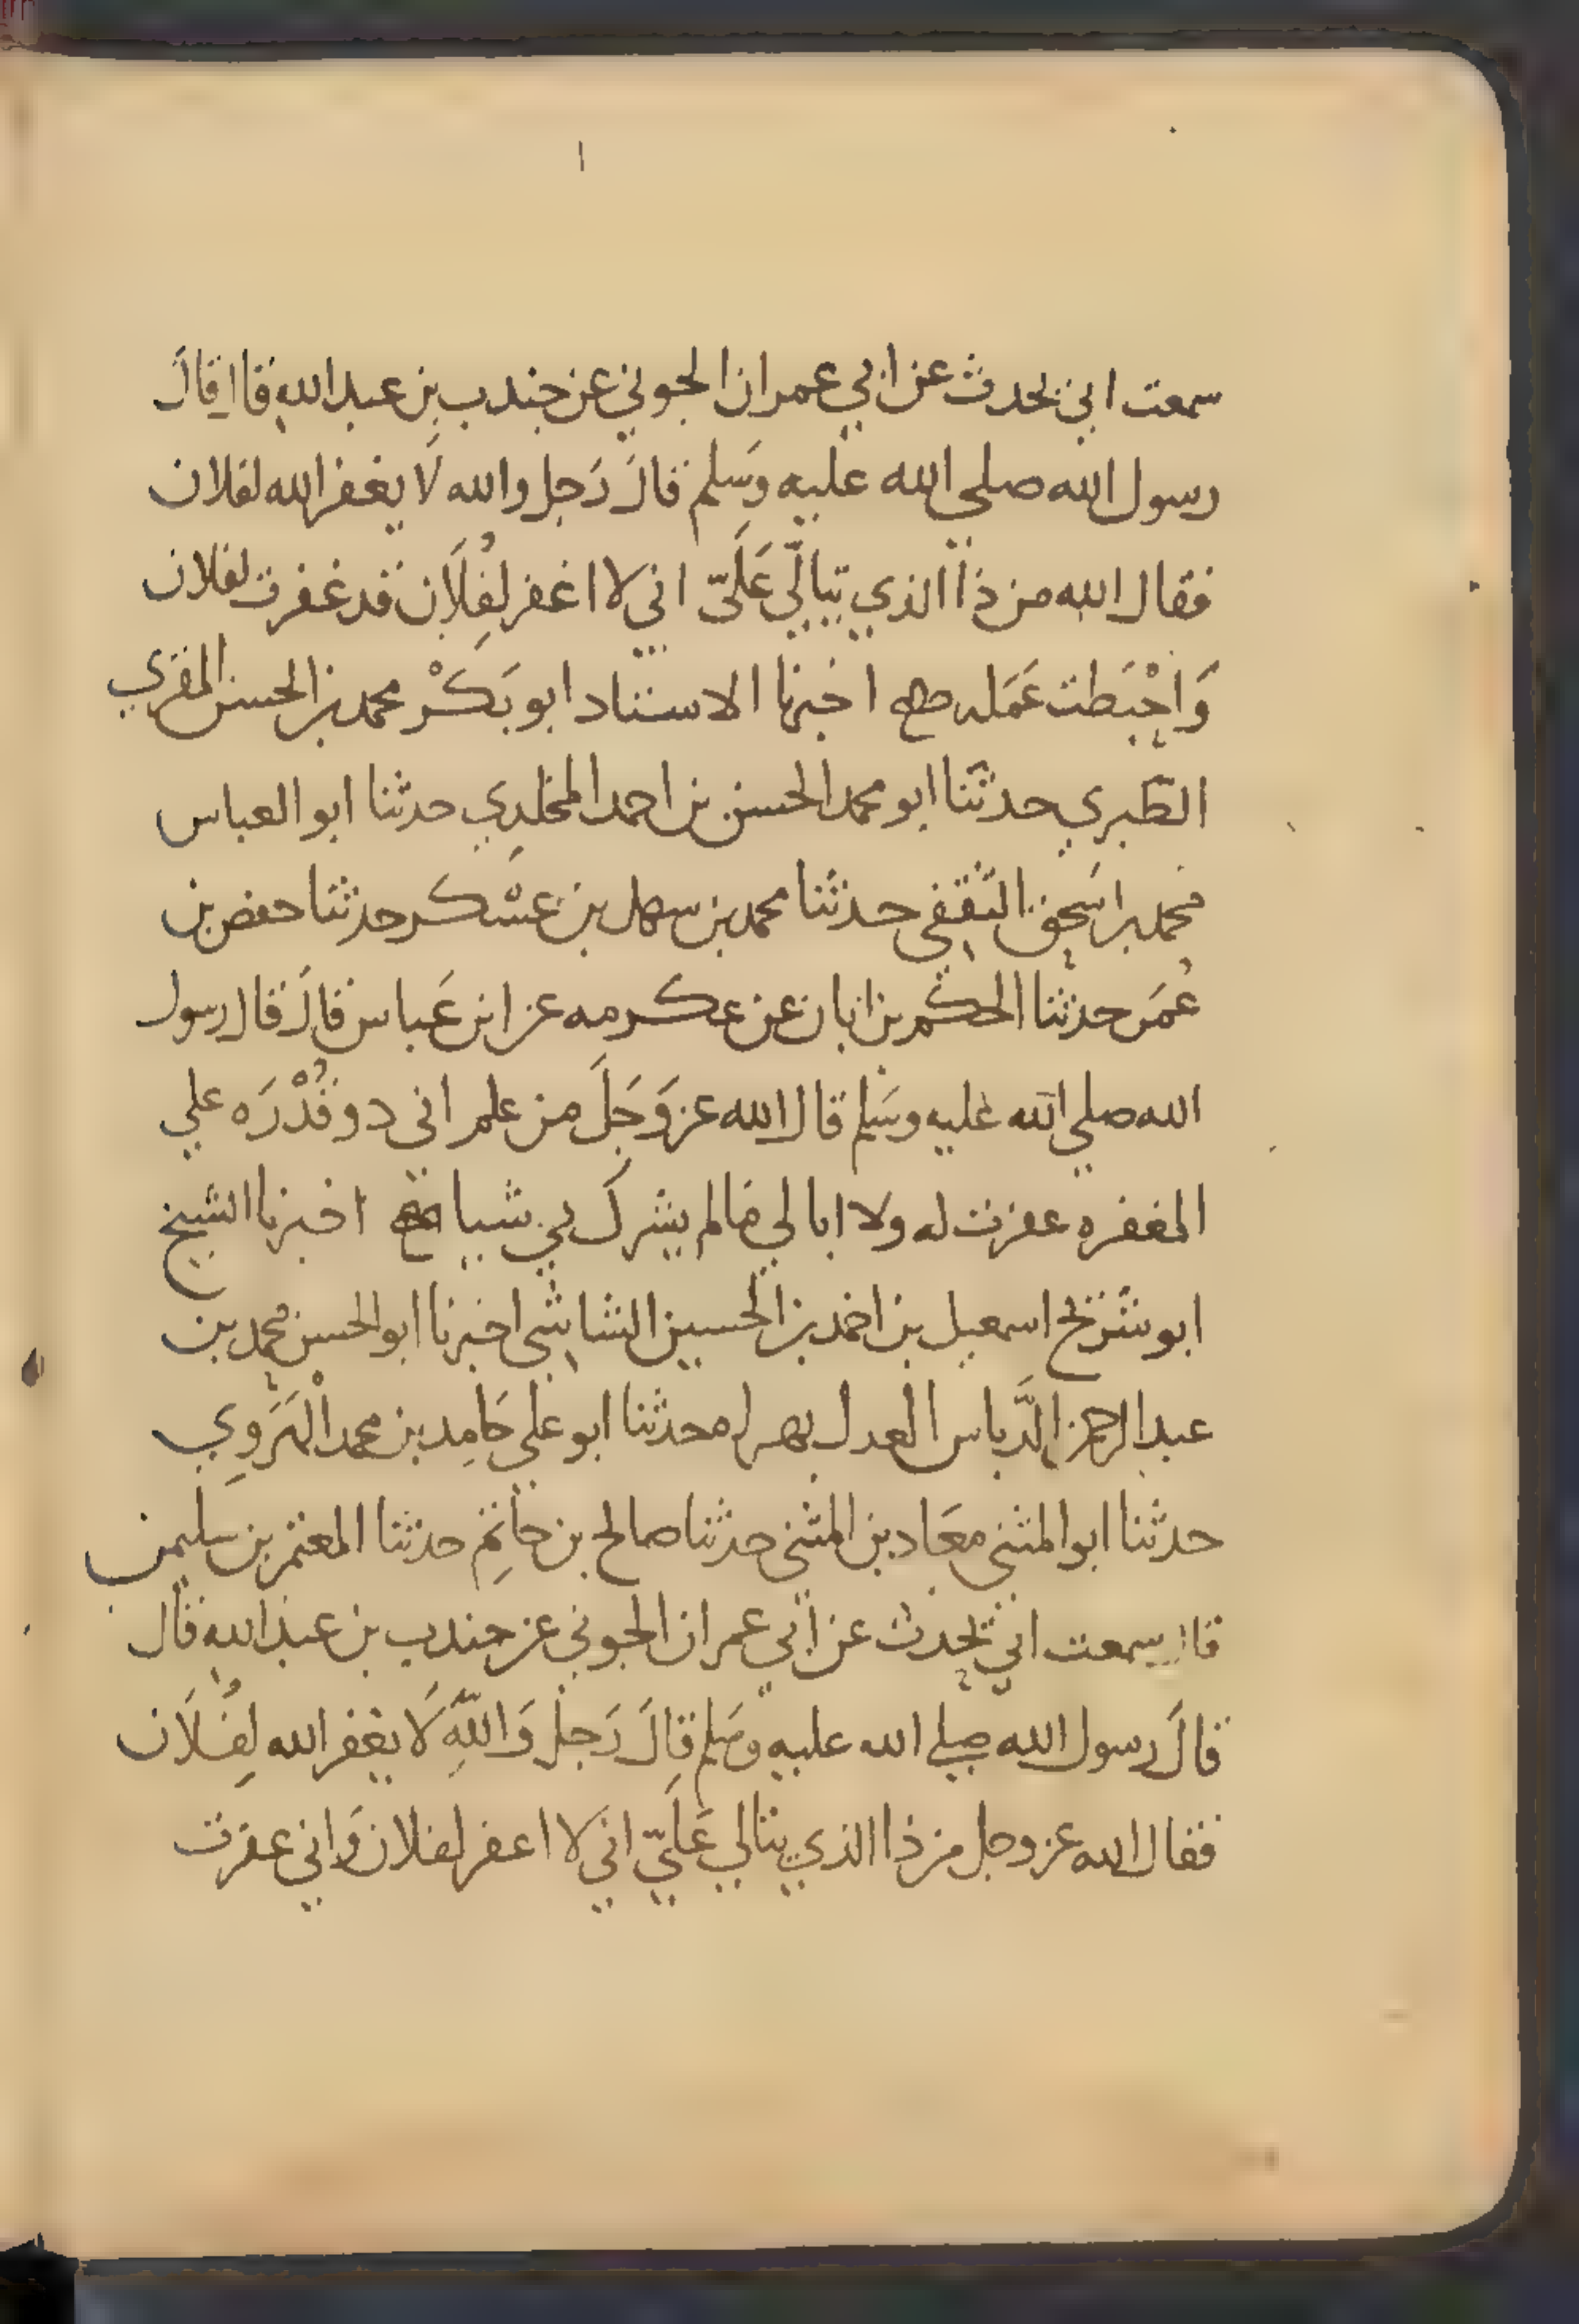 سمعت ابي يحدث عن ابي عمران الجوني عن جندب بن عبد الله قال قالَ
رسول الله صلي الله عليه وسَلم قالَ رَجل والله لَا يغفر الله لفلان
فقال الله من ذا الذي يتالّي عَلَيّ اني لا اغفر لِفُلَان قد غفرت لفلان
وَاحْبَطت عَمَله اخبرنا الاستاد ابو بَكْر محمد بن الحسن المقري
الطّبري حدثنا ابو محمد الحسن بن احمد المخلدِي حدثنا ابو العباس
محمد بن اسَحق الثقفي حدثنا محمد بن سهل بن عسْكر حدثنا حفص بن
عُمَر حدثنا الحكم بن ابان عن عكرمه عن ابن عَباس قالَ قال رسول
الله صلي الله عليه وسَلم قال الله عز وَجَلَ من علم اني دو قُدْرَه علي
المغفره غفرت له ولا ابالي مَا لم يشرك بي شيا اخبرنا الشيخ
ابو شُرَيح اسمعيل بن احمد بن الحسين الشاشي اخبرنا ابو الحسن محمد بن
عبد الرحمن الدَّباس العدل بهراه حدثنا ابو علي حَامِد بن محمد الْهَرَوِي
حدثنا ابو المثني معَاد بن المثني حدثنا صالح بن حَاتِم حدثنا المعتمر بن سليمن
قال سمعت ابي يحدث عن ابي عمران الجوني عن جندب بن عبد الله قال
قالَ رسول الله صلي الله عليه وسَلم قالَ رَجل وَاللَّهِ لَا يغفر الله لِفُلَان
فقال الله عز وجل من ذا الذي يتالي عَلَيّ اني لا اغفر لفلان وَاني غفرت